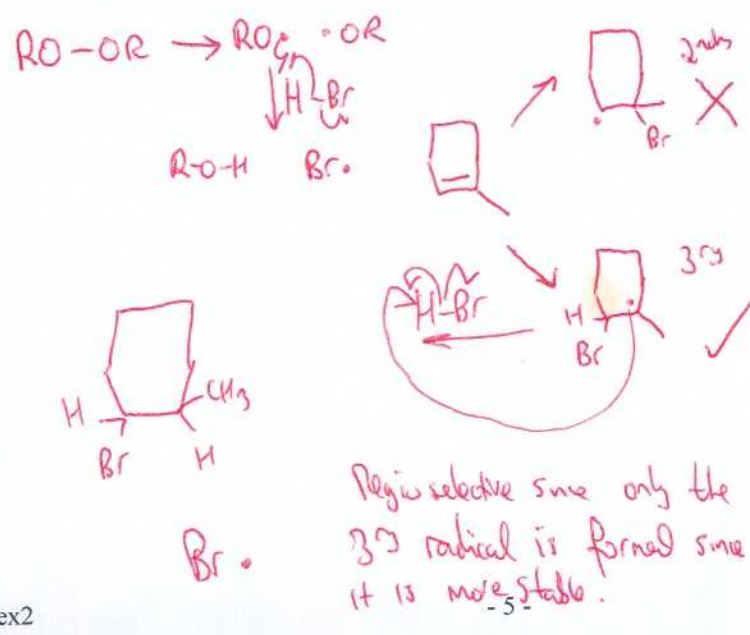 RO-OR → RO· ·OR
H-Br
R-O-H Br·
2ndry
Br
3ry
H-Br
H
Br
H CH3
Br H
Br·
Regioselective since only the
3ry radical is formed since
it is more stable.
ex2
- 5 -